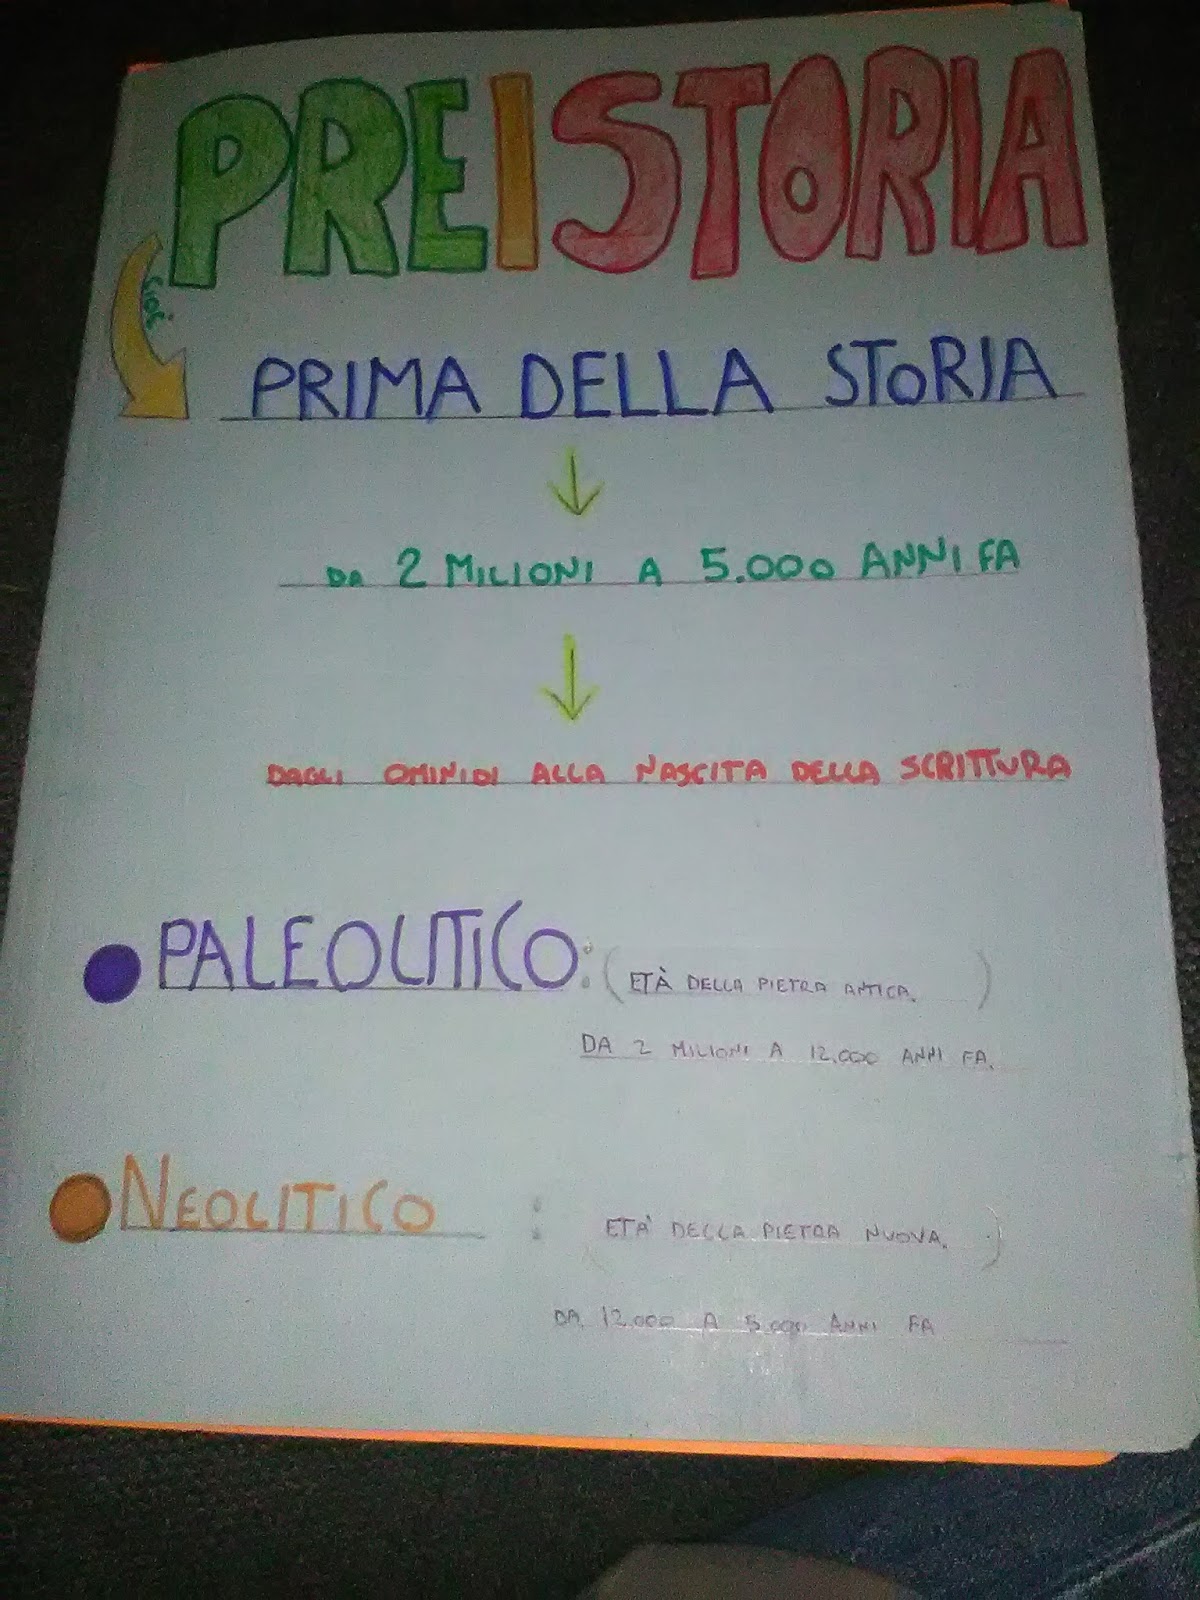 PREISTORIA
cioè
PRIMA DELLA STORIA
DA 2 MILIONI A 5.000 ANNI FA
DAGLI OMINIDI ALLA NASCITA DELLA SCRITTURA
PALEOLITICO: (ETÀ DELLA PIETRA ANTICA.)
DA 2 MILIONI A 12.000 ANNI FA.
NEOLITICO : (ETA' DELLA PIETRA NUOVA.)
DA 12.000 A 5.000 ANNI FA